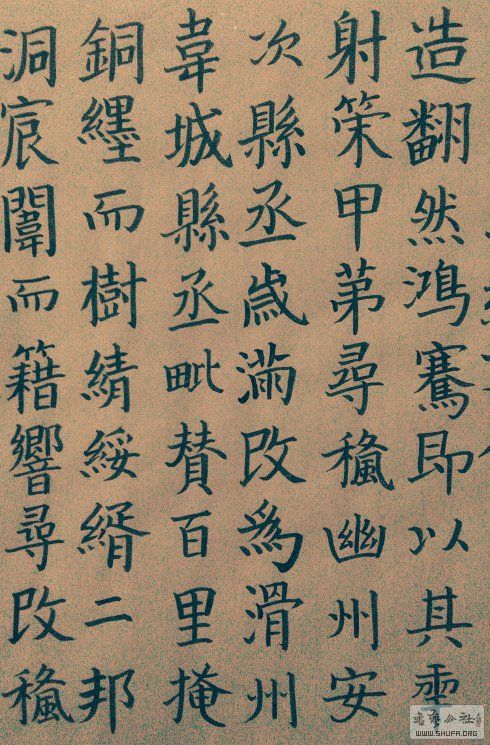 造翻然鴻騫即以其
射策甲苐尋𥠢幽州安
次縣丞歲滿改為滑州
韋城縣丞毗賛百里掩
銅纆而樹績綏緝二邦
洞宸闈而籍響尋改𥠢
书艺公社
WWW.SHUFA.ORG